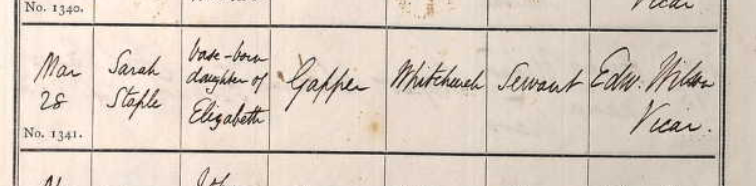 No. 1340.
Vicar
Mar
28
No. 1341.
Sarah
Staple
base-born
daughter of
Elizabeth
Gapper
Whitchurch
Servant
Edw. Wilson
Vicar.